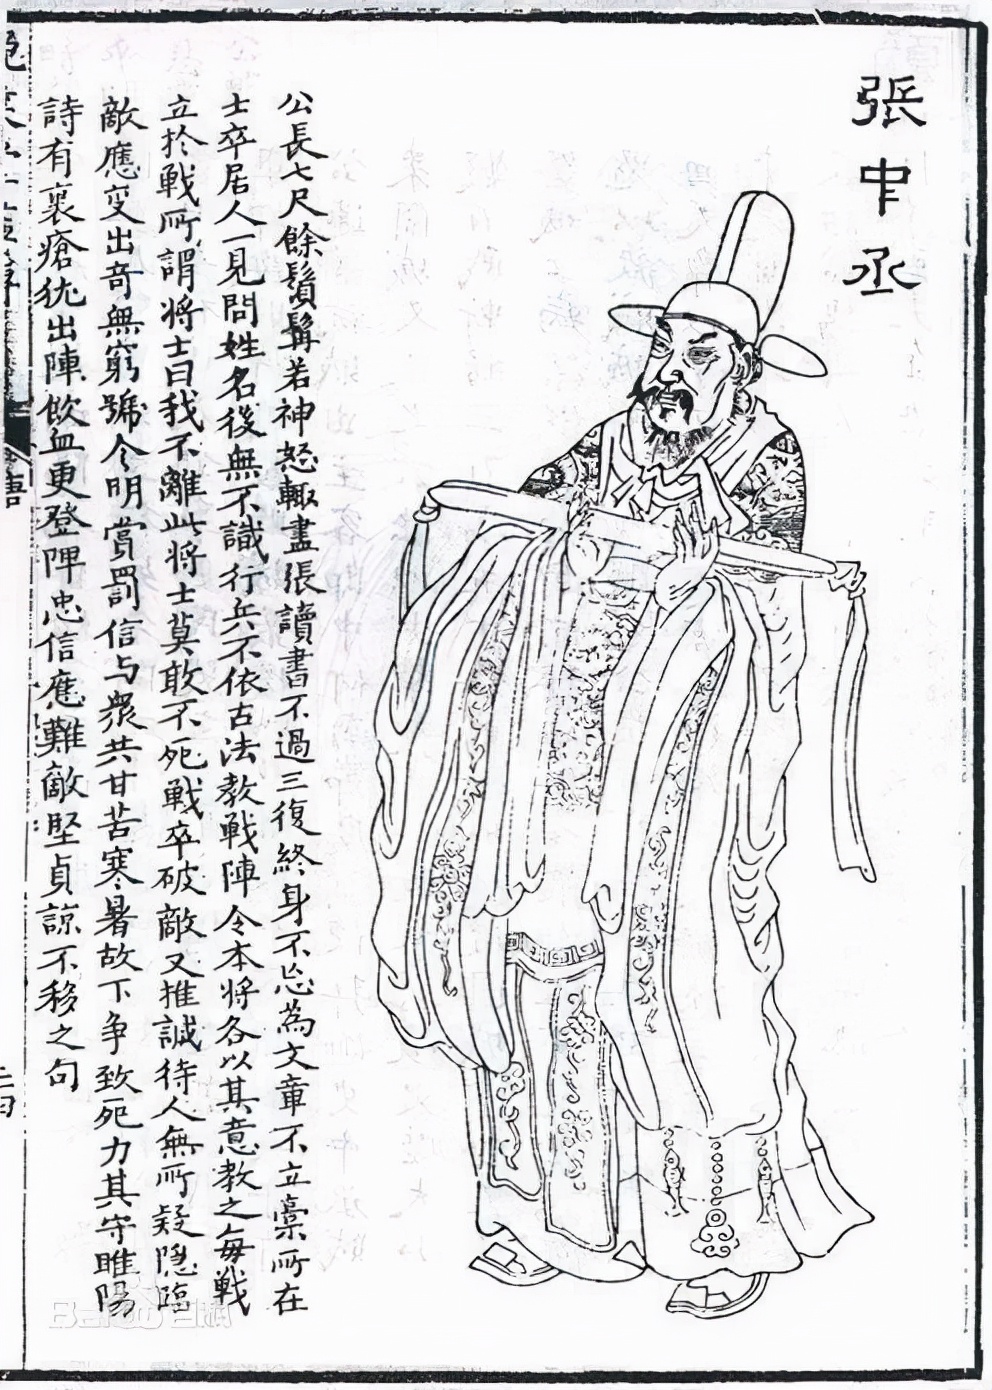 張中丞
公長七尺餘鬚髯若神怒輒盡張讀書不過三復終身不忘為文章不立藁所在
士卒居人一見問姓名後無不識行兵不依古法教戰陣令本將各以其意教之每戰
立於戰所謂將士曰我不離此將士莫敢不死戰卒破敵又推誠待人無所疑隱臨
敵應变出奇無窮號令明賞罰信与衆共甘苦寒暑故下争致死力其守睢陽
詩有裹瘡犹出陣飲血更登陴忠信應難敵堅貞諒不移之句
唐
二四